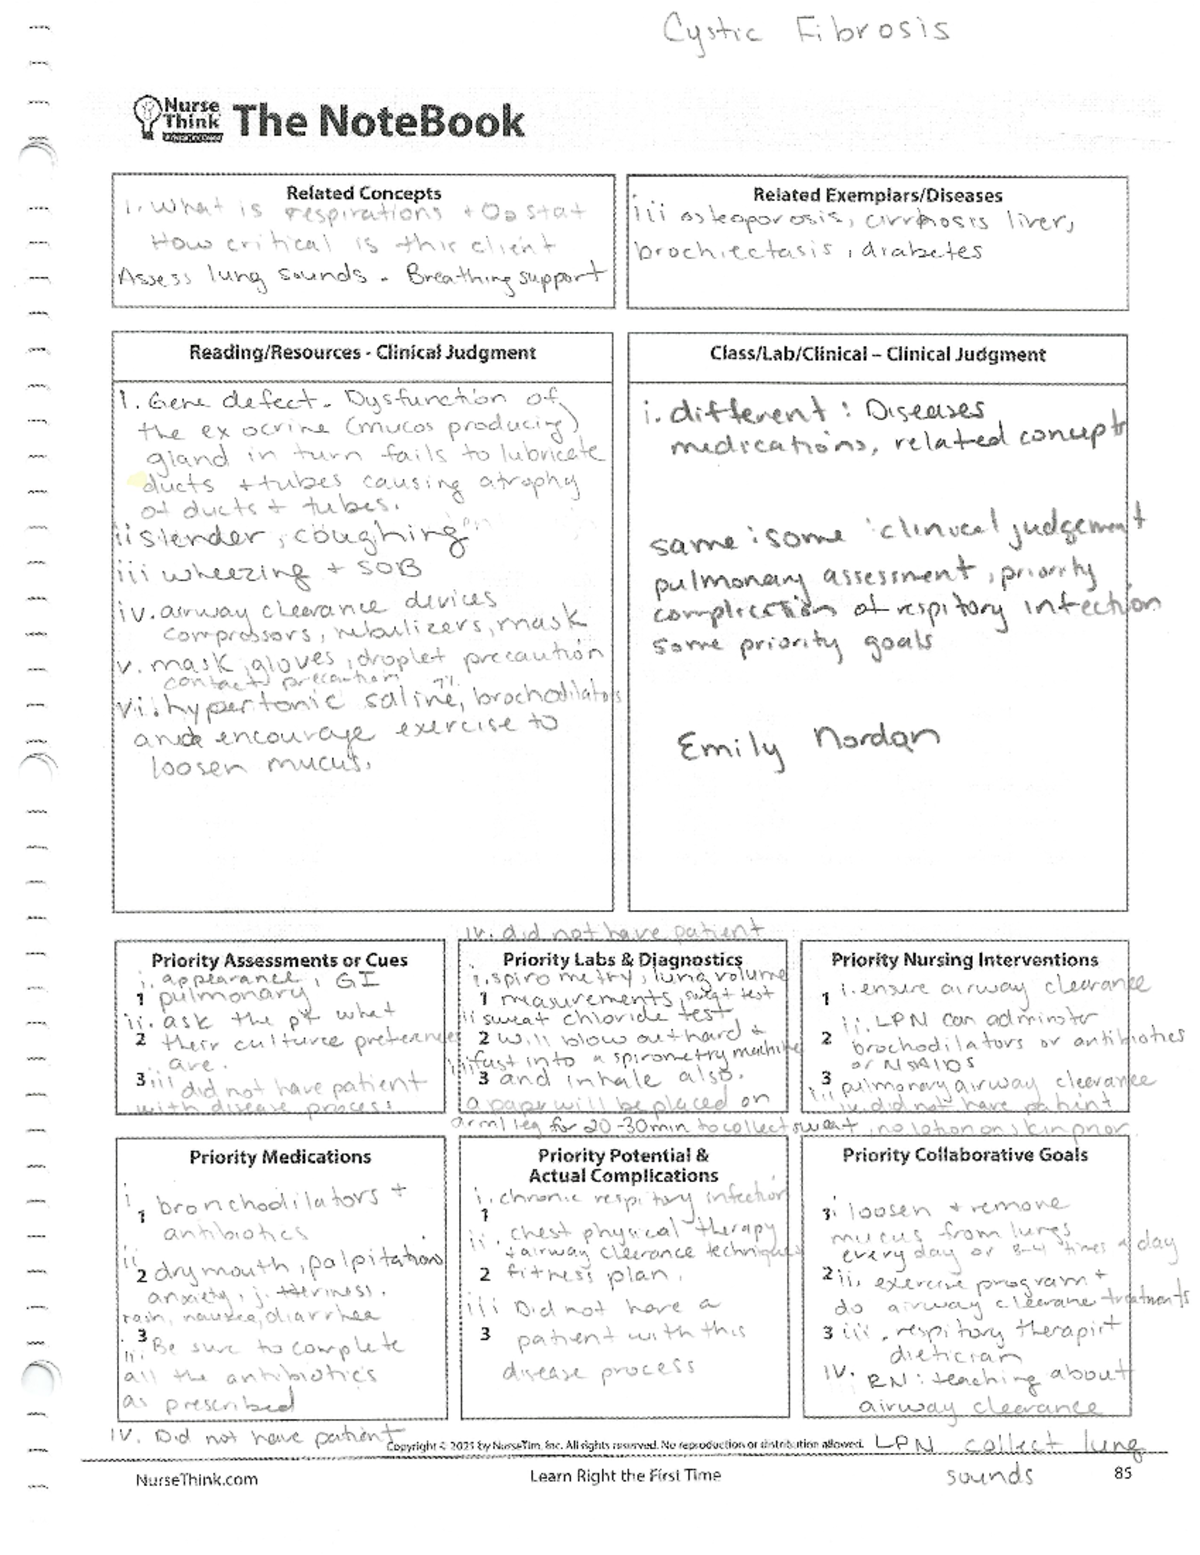 Cystic Fibrosis
Nurse
Think
The NoteBook
Related Concepts
i. What is respirations + O2 stat
How critical is this client
Assess lung sounds - Breathing support
Related Exemplars/Diseases
iii osteoporosis, cirrhosis liver,
brochiectasis, diabetes
Reading/Resources - Clinical Judgment
1. Gene defect. Dysfunction of
the exocrine (mucos producing)
gland in turn fails to lubricate
ducts + tubes causing atrophy
of ducts + tubes.
ii slender, coughing
iii wheezing + SOB
iv. airway clearance devices
compressors, nebulizers, mask
v. mask, gloves, droplet precaution
contact precaution
vi. hypertonic saline, brochodilators
7%
and encourage exercise to
loosen mucus.
Class/Lab/Clinical – Clinical Judgment
i. different : Diseases
medications, related concept
same : some clinical judgement
pulmonary assessment, priority
complication of respitory infection
some priority goals
Emily Nordan
Priority Assessments or Cues
i. appearance, GI
1 pulmonary
ii. ask the pt what
2 their culture preferences
are.
3 iii did not have patient
with disease process
iv. did not have patient
Priority Labs & Diagnostics
i. spirometry, lung volume
1 measurements, sweat test
ii sweat chloride test
2 will blow out hard +
iii fast into a spirometry machine
3 and inhale also.
a paper will be placed on
arm/leg for 20-30min to collect sweat, no lotion on skin prior
Priority Nursing Interventions
1 i. ensure airway clearance
ii. LPN can adminster
2 brochodilators or antibiotics
or NSAIDS
3 pulmonary airway clearance
iii
iv. did not have patint
Priority Medications
i.
1 bronchodilators +
antibiotics
ii
2 dry mouth, palpitations
anxiety, jitteriness.
rash, nausea, diarrhea
3 Be sure to complete
iii.
all the antibiotics
as prescribed
iv. Did not have patient
Priority Potential &
Actual Complications
i. chronic respitory infection
1
ii. chest physical therapy
+ airway clearance techniques
2 fitness plan.
iii Did not have a
3 patient with this
disease process
Priority Collaborative Goals
1 i loosen + remove
mucus from lungs
every day or 3-4 times a day
2 ii. exercise program +
do airway clearane treatments
3 iii. respitory therapirt
dietician
iv. RN: teaching about
airway clearance
LPN collect lung
sounds
Copyright © 2021 by NurseTim, Inc. All rights reserved. No reproduction or distribution allowed.
NurseThink.com
Learn Right the First Time
85